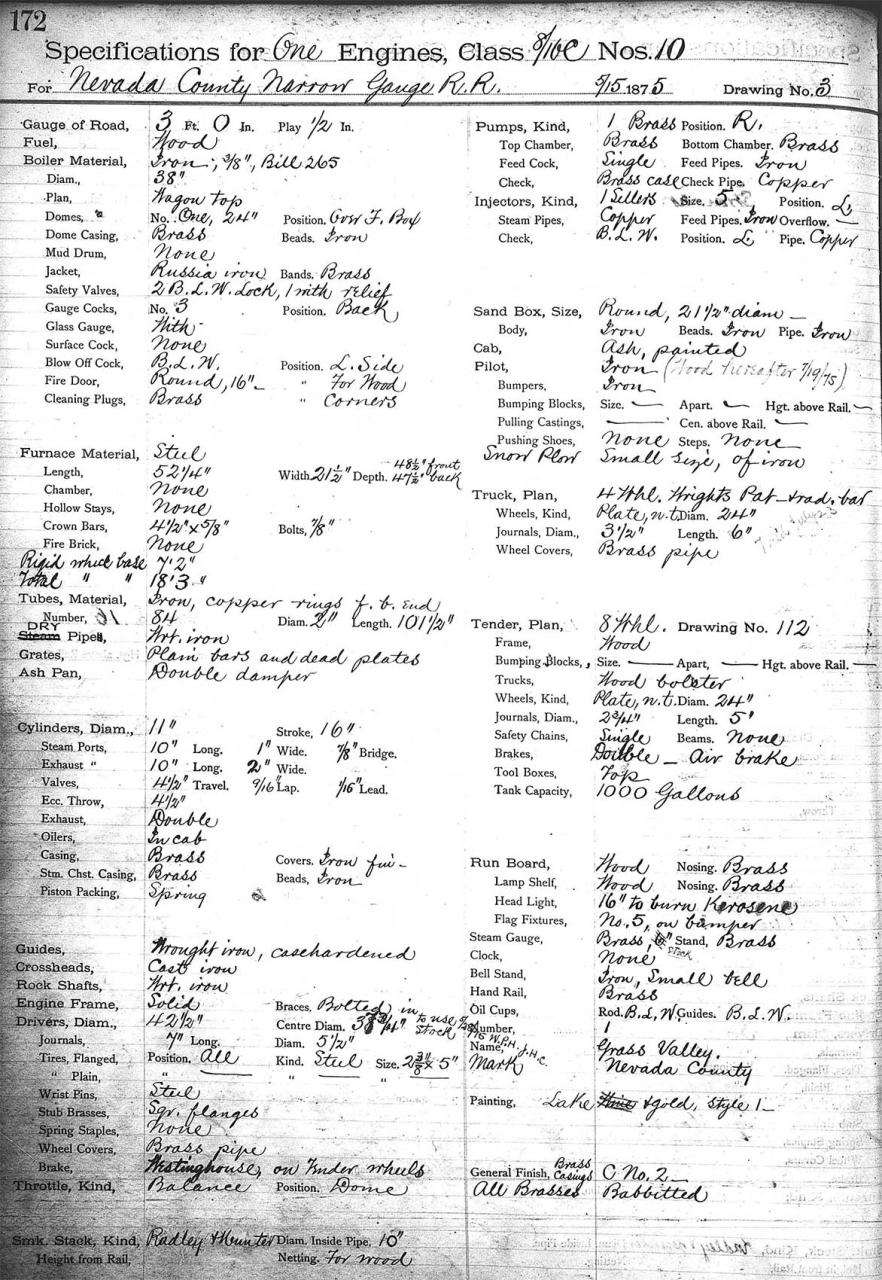 172
Specifications for One Engines, Class 8/16C Nos. 10
For Nevada County Narrow Gauge R.R. 5/15 1875 Drawing No. 3
Gauge of Road, 3 Ft. 0 In. Play 1/2 In.
Fuel, Wood
Boiler Material, Iron, 3/8", Bill 265
Diam., 38"
Plan, Wagon top
Domes, No. One, 24" Position. Over F. Box
Dome Casing, Brass Beads. Iron
Mud Drum, None
Jacket, Russia iron Bands. Brass
Safety Valves, 2 B.L.W. Lock, 1 with relief
Gauge Cocks, No. 3 Position. Back
Glass Gauge, With
Surface Cock, None
Blow Off Cock, B.L.W. Position. L. Side
Fire Door, Round, 16" " For Wood
Cleaning Plugs, Brass " Corners
Furnace Material, Steel
Length, 52 1/4" Width. 21 1/2" Depth. 48 1/2" front 47 1/2" back
Chamber, None
Hollow Stays, None
Crown Bars, 4 1/2" x 5/8" Bolts, 7/8"
Fire Brick, None
Rigid wheel base 7' 2"
Total " " 18' 3"
Tubes, Material, Iron, copper rings f. b. end
Number, 84 Diam. 2" Length. 101 1/2"
DRY
Steam Pipes, Wrt. iron
Grates, Plain bars and dead plates
Ash Pan, Double damper
Cylinders, Diam., 11" Stroke, 16"
Steam Ports, 10" Long. 1" Wide. 7/8" Bridge.
Exhaust " 10" Long. 2" Wide.
Valves, 4 1/2" Travel. 9/16" Lap. 1/16" Lead.
Ecc. Throw, 4 1/2"
Exhaust, Double
Oilers, In cab
Casing, Brass Covers. Iron fin-
Stm. Chst. Casing, Brass Beads, Iron
Piston Packing, Spring
Guides, Wrought iron, casehardened
Crossheads, Cast iron
Rock Shafts, Wrt. iron
Engine Frame, Solid Braces, Bolted in
Drivers, Diam., 42 1/2" Centre Diam. 38 3/4" to use stock
Journals, 7" Long. Diam. 5 1/2"
Tires, Flanged, Position. All Kind. Steel Size. 2 3/8" x 5"
" Plain, " " "
Wrist Pins, Steel
Stub Brasses, Sqr. flanges
Spring Staples, None
Wheel Covers, Brass pipe
Brake, Westinghouse, on Tender wheels
Throttle, Kind, Balance Position. Dome
Smk. Stack, Kind, Radley & Hunter Diam. Inside Pipe, 10"
Height from Rail, Netting. For wood
Pumps, Kind, 1 Brass Position. R.
Top Chamber, Brass Bottom Chamber. Brass
Feed Cock, Single Feed Pipes. Iron
Check, Brass case Check Pipe. Copper
Injectors, Kind, 1 Sellers Size. 5 Position. L.
Steam Pipes, Copper Feed Pipes. Iron Overflow. —
Check, B.L.W. Position. L. Pipe. Copper
Sand Box, Size, Round, 21 1/2" diam —
Body, Iron Beads. Iron Pipe. Iron
Cab, Ash, painted
Pilot, Iron (Wood hereafter 7/19/75)
Bumpers, Iron
Bumping Blocks, Size. — Apart. — Hgt. above Rail. —
Pulling Castings, — Cen. above Rail. —
Pushing Shoes, None Steps. None
Snow Plow Small size, of iron
Truck, Plan, 4 Whl. Wrights Pat - rad. bar
Wheels, Kind, Plate, n.t. Diam. 24"
Journals, Diam., 3 1/2" Length. 6"
Wheel Covers, Brass pipe
Tender, Plan, 8 Whl. Drawing No. 112
Frame, Wood
Bumping Blocks, Size. — Apart, — Hgt. above Rail. —
Trucks, Wood bolster
Wheels, Kind, Plate, n.t. Diam. 24"
Journals, Diam., 2 3/4" Length. 5"
Safety Chains, Single Beams. None
Brakes, Double - Air brake
Tool Boxes, Top
Tank Capacity, 1000 Gallons
Run Board, Wood Nosing. Brass
Lamp Shelf, Wood Nosing. Brass
Head Light, 16" to burn Kerosene
Flag Fixtures, No. 5, on bumper
Steam Gauge, Brass, Stand, Brass
Clock, None
Bell Stand, Iron, Small bell
Hand Rail, Brass
Oil Cups, Rod. B.L.W. Guides. B.L.W.
Number, 1
Name, Grass Valley.
Mark Nevada County
Painting, Lake Wine & gold, style 1 —
General Finish, Brass Casings C No. 2
All Brasses Babbitted